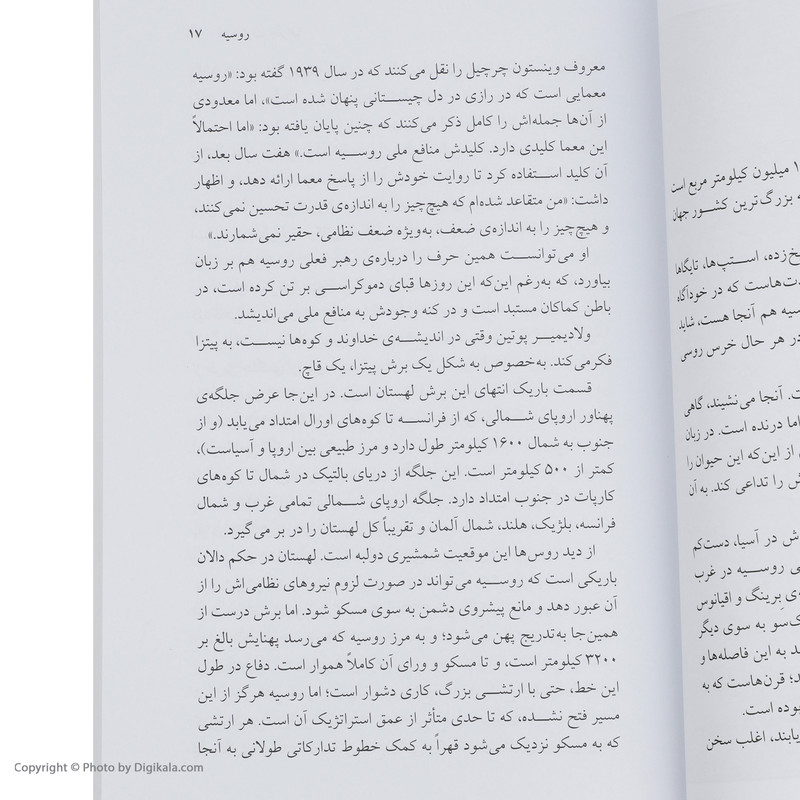 روسیه ۱۷
معروف وینستون چرچیل را نقل می‌کنند که در سال ۱۹۳۹ گفته بود: «روسیه
معمایی است که در رازی در دل چیستانی پنهان شده است»، اما معدودی
از آن‌ها جمله‌اش را کامل ذکر می‌کنند که چنین پایان یافته بود: «اما احتمالاً
این معما کلیدی دارد. کلیدش منافع ملی روسیه است.» هفت سال بعد، از
آن کلید استفاده کرد تا روایت خودش را از پاسخ معما ارائه دهد، و اظهار
داشت: «من متقاعد شده‌ام که هیچ‌چیز را به اندازه‌ی قدرت تحسین نمی‌کنند،
و هیچ‌چیز را به اندازه‌ی ضعف، به‌ویژه ضعف نظامی، حقیر نمی‌شمارند.»
او می‌توانست همین حرف را درباره‌ی رهبر فعلی روسیه هم بر زبان
بیاورد، که به‌رغم این‌که این روزها قبای دموکراسی بر تن کرده است، در
باطن کماکان مستبد است و در کنه وجودش به منافع ملی می‌اندیشد.
ولادیمیر پوتین وقتی در اندیشه‌ی خداوند و کوه‌ها نیست، به پیتزا
فکر می‌کند. به‌خصوص به شکل یک برش پیتزا، یک قاچ.
قسمت باریک انتهای این برش لهستان است. در این‌جا عرض جلگه‌ی
پهناور اروپای شمالی، که از فرانسه تا کوه‌های اورال امتداد می‌یابد (و از
جنوب به شمال ۱۶۰۰ کیلومتر طول دارد و مرز طبیعی بین اروپا و آسیاست)،
کمتر از ۵۰۰ کیلومتر است. این جلگه از دریای بالتیک در شمال تا کوه‌های
کارپات در جنوب امتداد دارد. جلگه اروپای شمالی تمامی غرب و شمال
فرانسه، بلژیک، هلند، شمال آلمان و تقریباً کل لهستان را در بر می‌گیرد.
از دید روس‌ها این موقعیت شمشیری دولبه است. لهستان در حکم دالان
باریکی است که روسیه می‌تواند در صورت لزوم نیروهای نظامی‌اش را از
آن عبور دهد و مانع پیشروی دشمن به سوی مسکو شود. اما برش درست از
همین‌جا به‌تدریج پهن می‌شود؛ و به مرز روسیه که می‌رسد پهنایش بالغ بر
۳۲۰۰ کیلومتر است، و تا مسکو و ورای آن کاملاً هموار است. دفاع در طول
این خط، حتی با ارتشی بزرگ، کاری دشوار است؛ اما روسیه هرگز از این
مسیر فتح نشده، که تا حدی متأثر از عمق استراتژیک آن است. هر ارتشی
که به مسکو نزدیک می‌شود قهراً به کمک خطوط تدارکاتی طولانی به آنجا
میلیون کیلومتر مربع است
بزرگ‌ترین کشور جهان
استپ‌ها، تایگاها
که در خودآگاه
سیه هم آنجا هست، شاید
در هر حال خرس روسی
آنجا می‌نشیند، گاهی
اما درنده است. در زبان
از این‌که این حیوان را
را تداعی کند. به آن
در آسیا، دست‌کم
روسیه در غرب
برینگ و اقیانوس
به سوی دیگر
به این فاصله‌ها و
قرن‌هاست که به
بوده است.
اغلب سخن
Copyright © Photo by Digikala.com